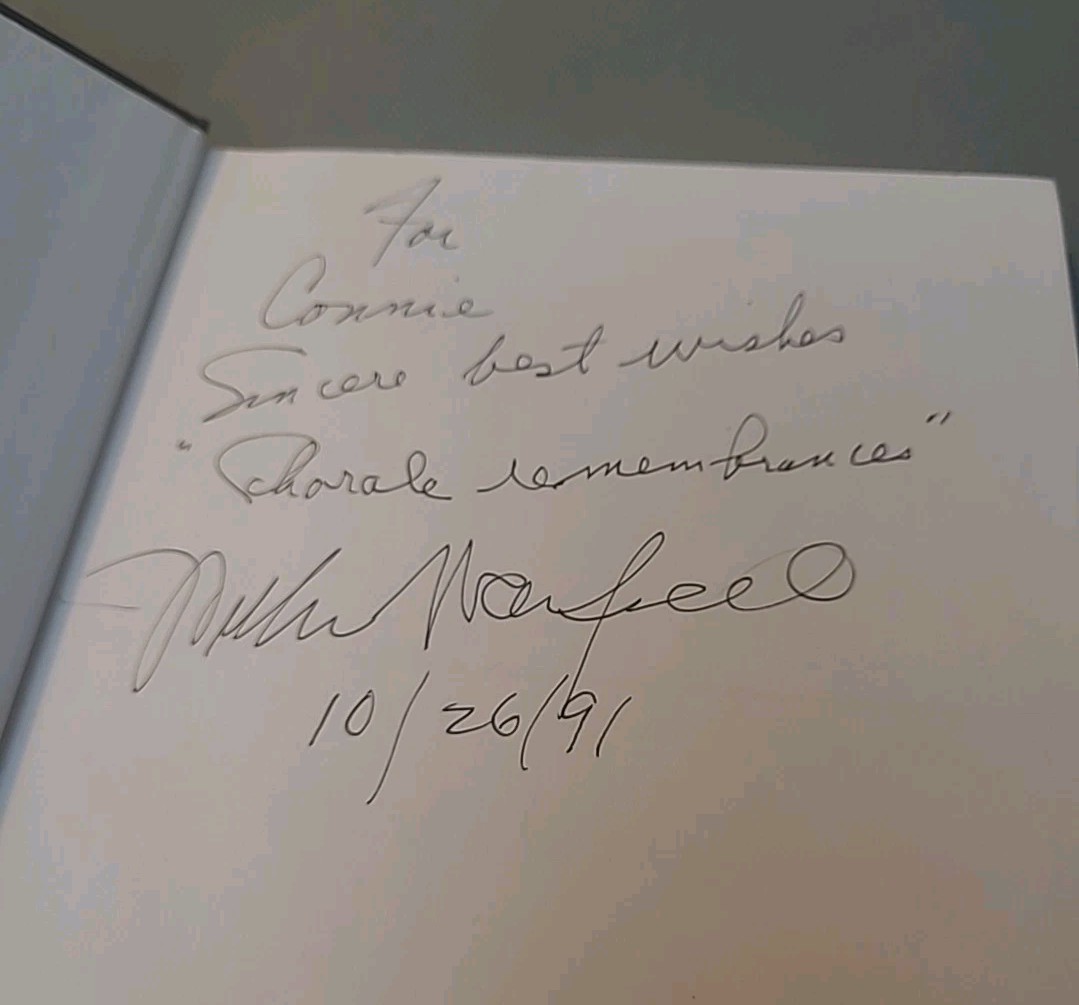 For
Connie
Sincere best wishes
"Chorale remembrances"
10/26/91